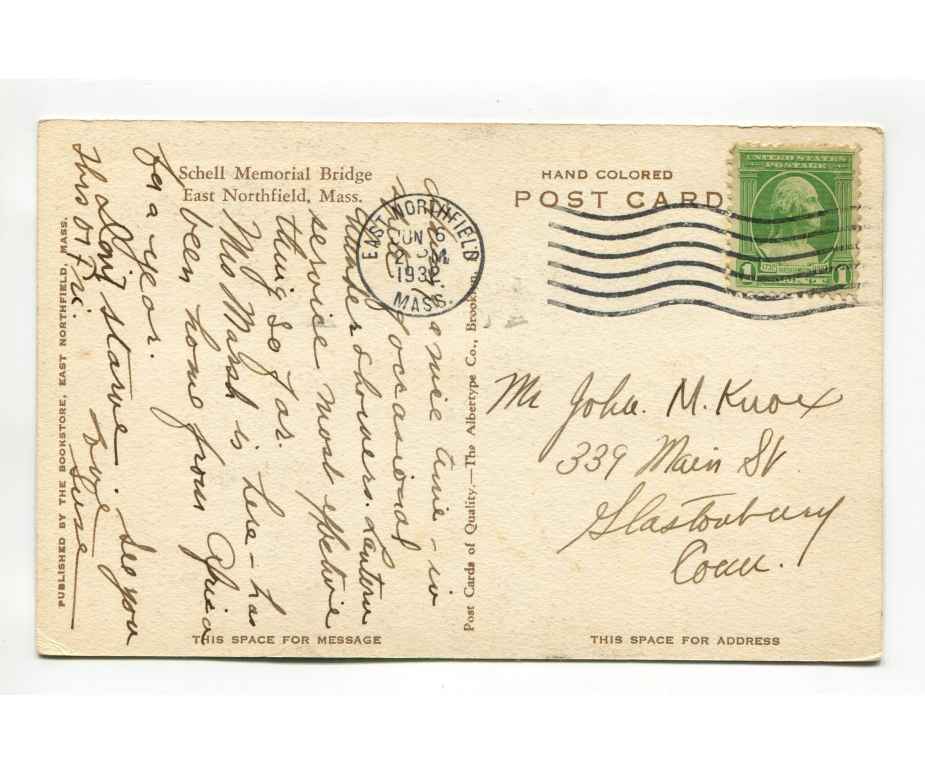 Schell Memorial Bridge
East Northfield, Mass.
HAND COLORED
POST CARD
UNITED STATES
POSTAGE
1 1
EAST NORTHFIEL'D
JUN 6
2 PM
1932
MASS.
a nice time – in
occasional
thunder showers. Lantern
service most effective
thing so far.
Mrs Marsh is here – has
been home from Africa
for a year.
Don't starve. See you
Thurs or Fri.
Love
Post Cards of Quality.—The Albertype Co., Brooklyn,
PUBLISHED BY THE BOOKSTORE, EAST NORTHFIELD, MASS.
Mr John. M. Knox
339 Main St.
Glastonbury
Conn.
THIS SPACE FOR MESSAGE
THIS SPACE FOR ADDRESS